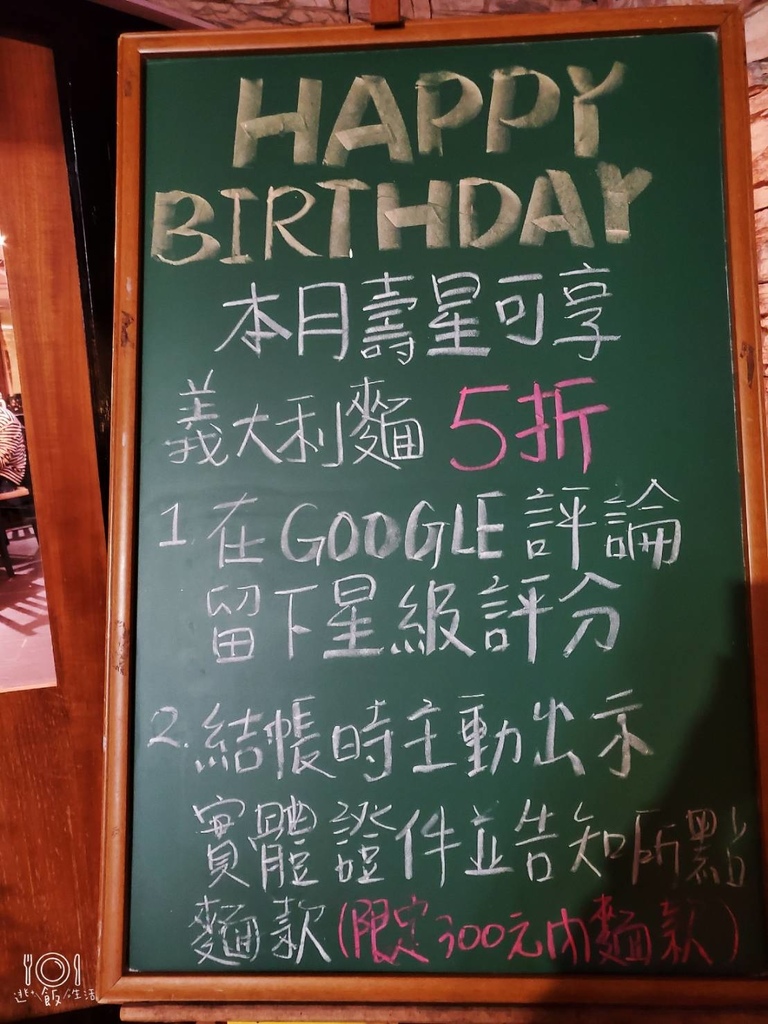 HAPPY
BIRTHDAY
本月壽星可享
義大利麵 5折
1. 在GOOGLE評論
留下星級評分
2. 結帳時主動出示
實體證件並告知所點
麵款(限定300元內麵款)